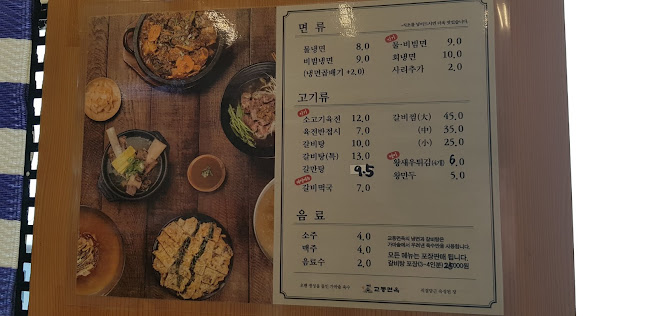 면 류
물냉면 8,0
비빔냉면 9,0
(냉면곱빼기 +2,0)
물·비빔면 9,0
회냉면 10,0
사리추가 2,0
고기류
소고기육전 12,0
육전반접시 7,0
갈비탕 10,0
갈비탕(특) 13,0
갈만탕 9.5
갈비떡국 7,0
갈비찜(大) 45,0
(中) 35,0
(小) 25,0
왕새우튀김(4개) 6,0
왕만두 5,0
음 료
소주 4,0
맥주 4,0
음료수 2,0
고종면옥의 냉면과 갈비탕은
가마솥에서 우려낸 육수만을 사용합니다.
모든 메뉴는 포장판매 됩니다.